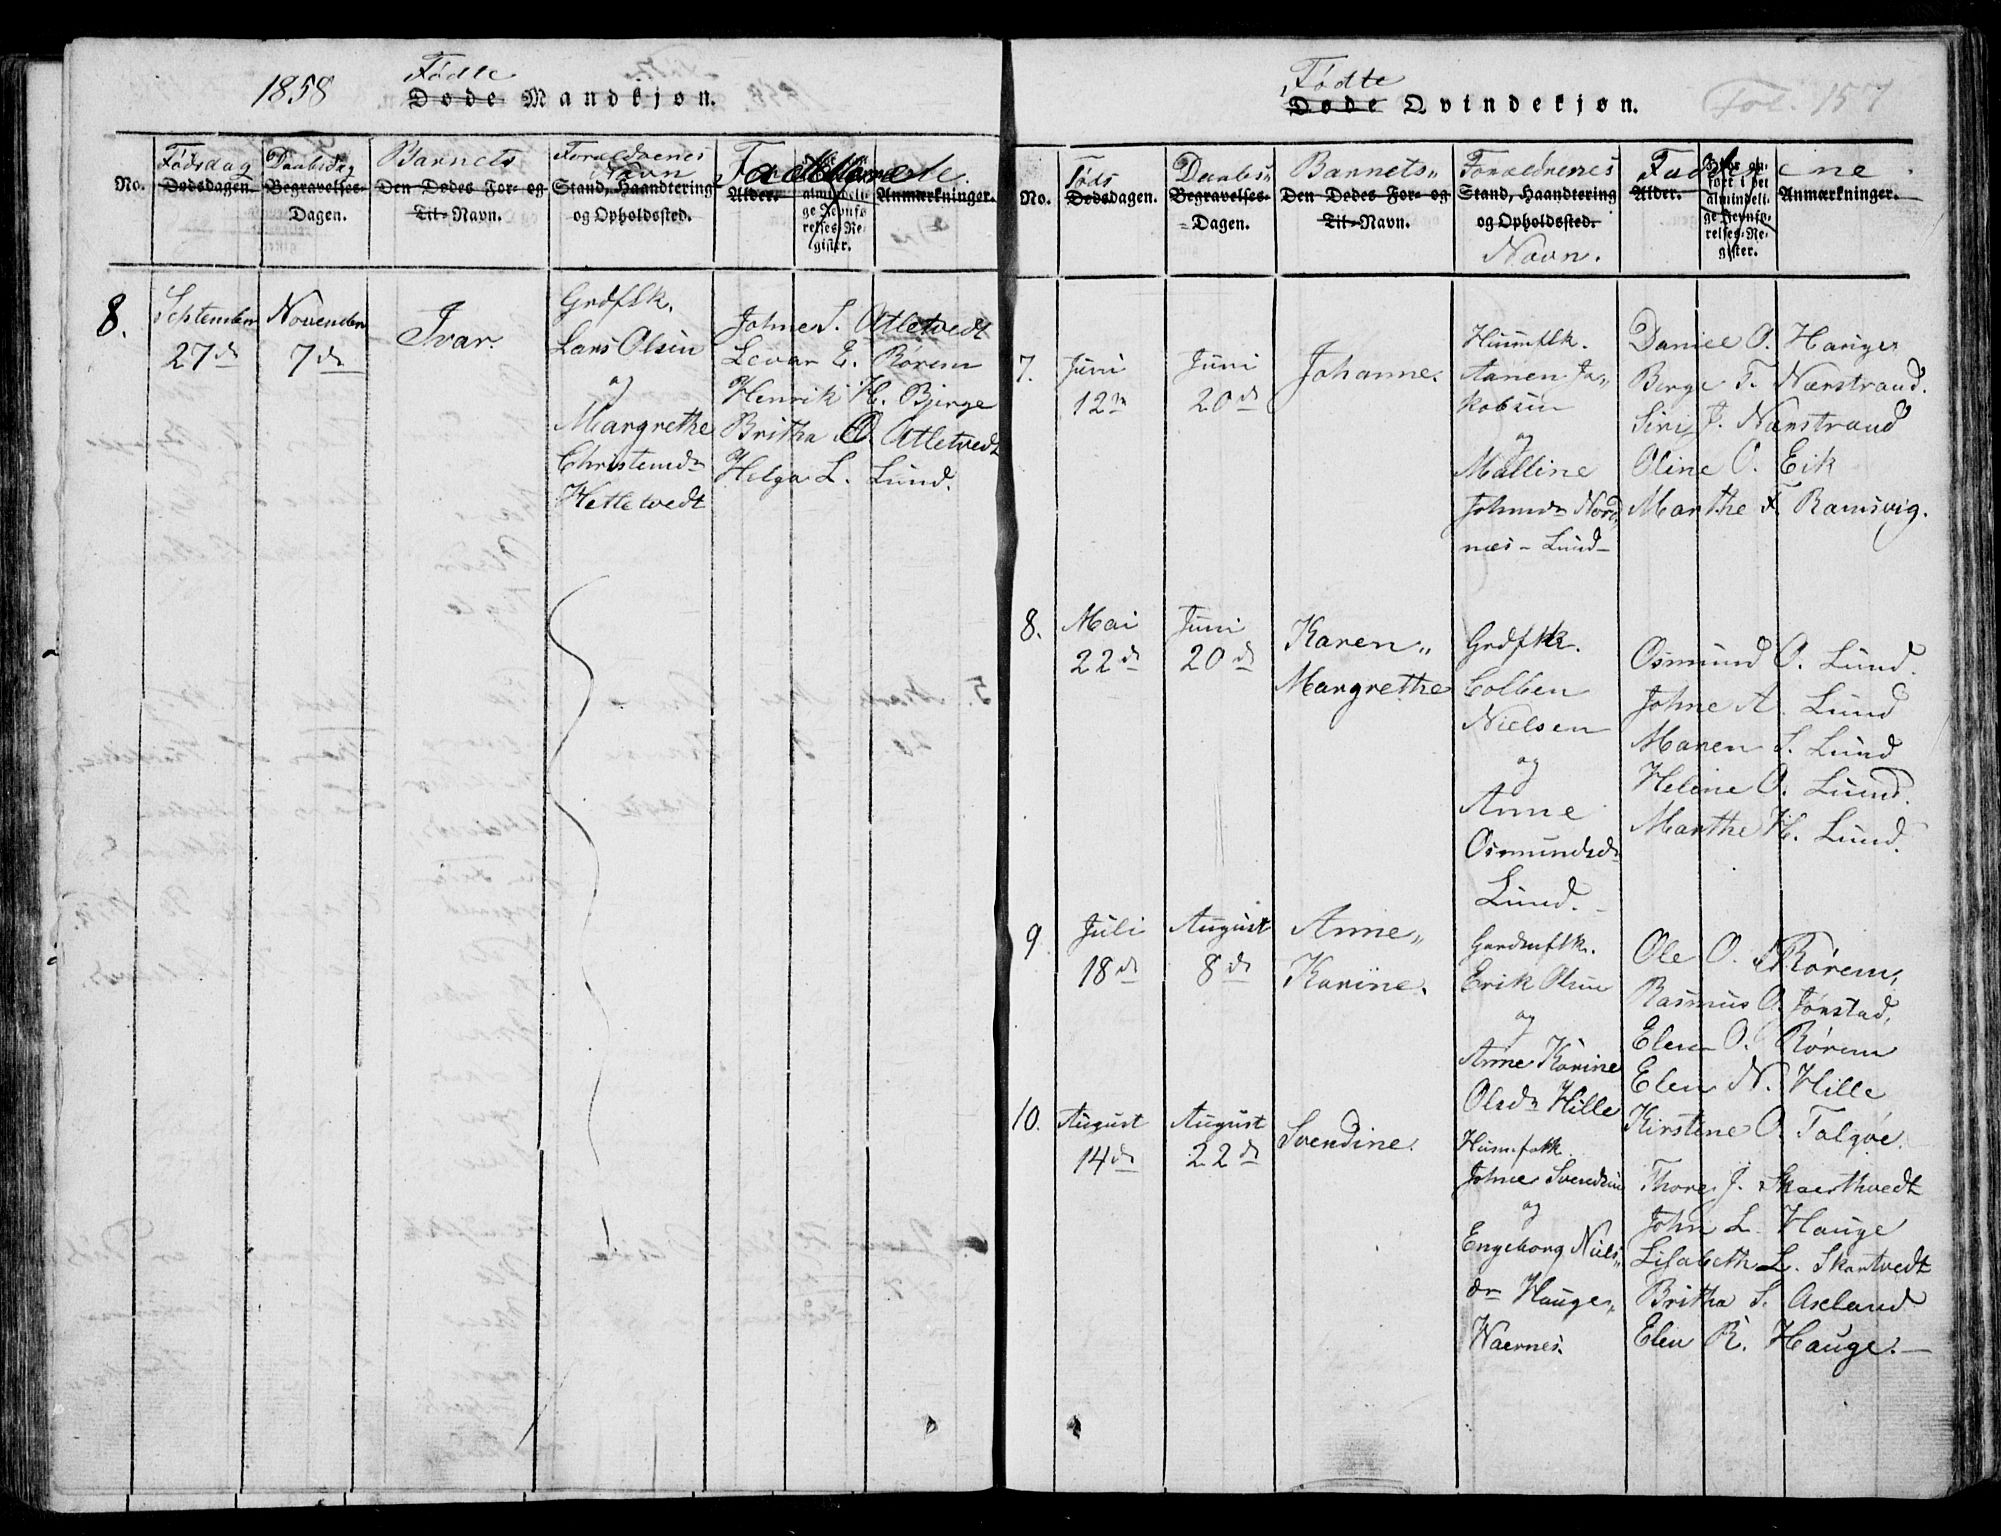 1858
Fødte
Døde Mandkjøn.
No.
Fødsdag
Dødsdagen.
Daabsdag
Begravelses-
Dagen.
Barnets
Den Dødes For- og
Til-Navn.
Forældrenes
Navn
Stand, Haandtering
og Opholdssted.
Fadderne.
Alder.
almindeli-
ge Jevnfø-
relses-Re-
gister.
Anmærkninger.
8.
September
27de
November
7de
Ivar.
Grdflk.
Lars Olsen
og
Margrethe
Christensdr
Hetletvedt
Johne S. Atletvedt
Levar E. Rørem
Henrik H. Bjerge
Britha O. Atletvedt
Helga L. Lund.
Fødte
Døde Qvindekjøn.
Fol. 157
No.
Føds
Dødsdagen.
Daabs-
Begravelses-
Dagen.
Barnets
Den Dødes For- og
Til-Navn.
Forældrenes
Stand, Haandtering
og Opholdssted.
Navn.
Fadderne.
Alder.
Hvor an-
ført i det
almindeli-
ge Jevnfø-
relses-Re-
gister.
Anmærkninger.
7.
Juni
12te
Juni
20de
Johanne.
Huusflk.
Aanen Ja-
kobsen
og
Malline
Johnsdr Nord-
næs - Lund -
Daniel O. Hauge
Berge T. Nærstrand.
Siri J. Nærstrand
Oline O. Eik
Marthe T. Ramsvig.
8.
Mai
22de
Juni
20de
Karen-
Margrethe
Grdflk.
Colben
Nielsen
og
Anne
Osmundsdr
Lund.
Osmund O. Lund.
Johne A. Lund
Maren S. Lund
Heline O. Lund.
Marthe H. Lund.
9
Juli
18de
August
8de
Anne-
Karine.
Gardmflk.
Erik Olsen
og
Anne Karine
Olsdr Hille
Ole O. Rørem,
Rasmus O. Jørstad,
Elen O. Rørem
Elen N. Hille
Kirstene O. Talgøe.
10.
August
14de
August
22de
Svendine.
Huusfolk
Johne Svendsen
og
Engeborg Niels-
dr Hauge-
Waernes.
Thore J. Skaerthvedt
John L. Hauge
Lisabeth L. Skartvedt
Britha S. Axeland
Elen R. Hauge. -